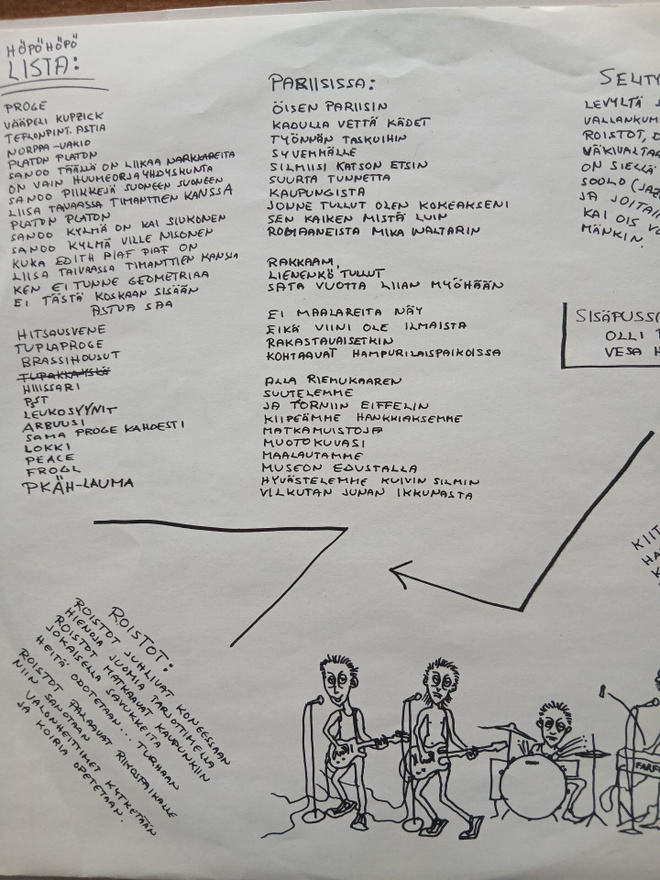 HÖPÖHÖPÖ
LISTA:
PROGE
VÄÄPELI KUPZICK
TEFLONPINT. ASTIA
NORPPA-VAKIO
PLATON PLATON
SANOO TÄÄLLÄ ON LIIKAA NARKKAREITA
ON VAIN HUUMEORJAYHDYSKUNTA
SANOO PIIKKEJÄ SUONEEN SUONEEN
LIISA TAIVAASSA TIMANTTIEN KANSSA
PLATON PLATON
SANOO KYLMÄ ON KAI SIUKONEN
SANOO KYLMÄ VILLE NISONEN
KUKA EDITH PIAF PIAF ON
LIISA TAIVAASSA TIMANTTIEN KANSSA
KEN EI TUNNE GEOMETRIAA
EI TÄSTÄ KOSKAAN SISÄÄN
ASTUA SAA
HITSAUSVENE
TUPLAPROGE
BRASSIHOUSUT
HIISSARI
PST
LEUKOSYYNIT
ARBUUSI
SAMA PROGE KAHDESTI
LOKKI
PEACE
FROGL
PKÄH-LAUMA
PARIISISSA:
ÖISEN PARIISIN
KADULLA VETTÄ KÄDET
TYÖNNÄN TASKUIHIN
SYVEMMÄLLE
SILMIISI KATSON ETSIN
SUURTA TUNNETTA
KAUPUNGISTA
JONNE TULLUT OLEN KOKEAKSENI
SEN KAIKEN MISTÄ LUIN
ROMAANEISTA MIKA WALTARIN
RAKKAANI,
LIENENKÖ TULLUT
SATA VUOTTA LIIAN MYÖHÄÄN
EI MAALAREITA NÄY
EIKÄ VIINI OLE ILMAISTA
RAKASTAVAISETKIN
KOHTAAVAT HAMPURILAISPAIKOISSA
ALLA RIEMUKAAREN
SUUTELEMME
JA TORNIIN EIFFELIN
KIIPEÄMME HANKKIAKSEMME
MATKAMUISTOJA
MUOTOKUVASI
MAALAUTAMME
MUSEON EDUSTALLA
HYVÄSTELEMME KUIVIN SILMIN
VILKUTAN JUNAN IKKUNASTA
SELITY
LEVYLTÄ
VALLANKUM
ROISTOT,
VÄKIVALTA
ON SIELLÄ
SOOLO (JAZ
JA JOITAI
KAI OIS
MÄNKIN.
SISÄPUSSI
OLLI
VESA
KIIT
ROISTOT:
ROISTOT JUHLIVAT KONGESSAAN
HIENOJA JUOMIA TARJOTTIMELLA
ROISTOT MATKAAVAT KAUPUNKIIN
JOKAISELLA SAVUKKEITA
HEITÄ ODOTETAAN... TURHAAN
ROISTOT PALAAVAT RIKOSPAIKALLE
NIIN SANOTAAN
VALONHEITTIMET KYTKETÄÄN
JA KOIRIA OPETETAAN.
FARF